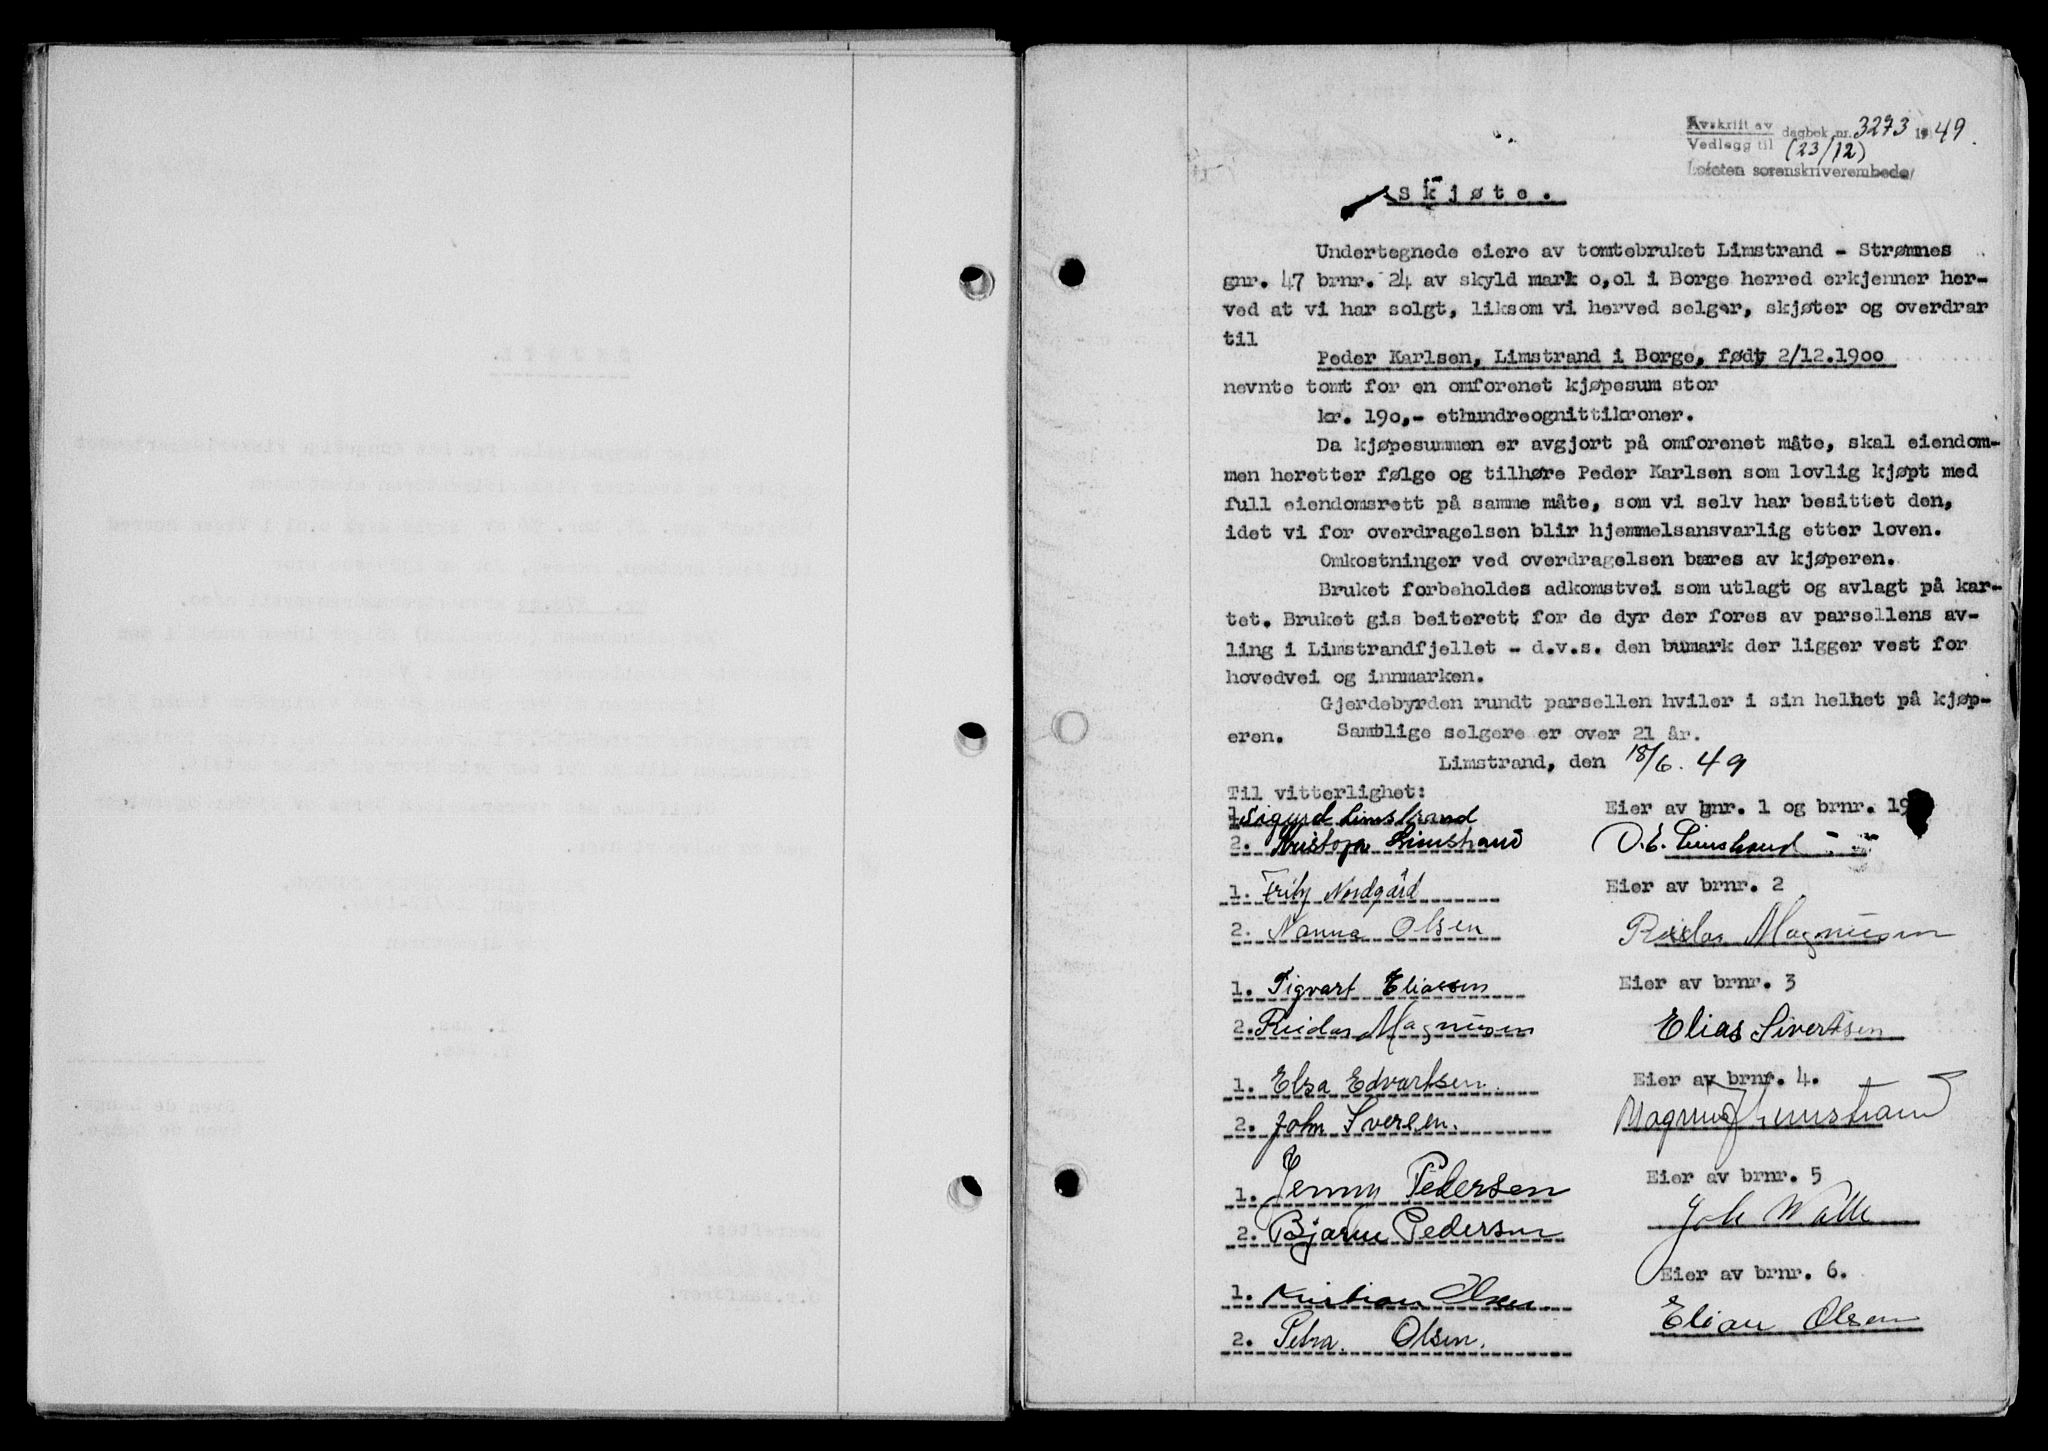 Avskrift av
Vedlegg til
dagbok nr. 3273 19 49.
(23/12)
Lofoten sorenskriverembede
Skjøte.
Undertegnede eiere av tomtebruket Limstrand - Strømnes
gnr. 47 brnr. 24 av skyld mark o,o1 i Borge herred erkjenner her-
ved at vi har solgt, liksom vi herved selger, skjøter og overdrar
til
Peder Karlsen, Limstrand i Borge, født 2/12.19oo
nevnte tomt for en omforenet kjøpesum stor
kr. 19o,- ethundreognittikroner.
Da kjøpesummen er avgjort på omforenet måte, skal eiendom-
men heretter følge og tilhøre Peder Karlsen som lovlig kjøpt med
full eiendomsrett på samme måte, som vi selv har besittet den,
idet vi for overdragelsen blir hjemmelsansvarlig etter loven.
Omkostninger ved overdragelsen bæres av kjøperen.
Bruket forbeholdes adkomstvei som utlagt og avlagt på kar-
tet. Bruket gis beiterett for de dyr der fores av parsellens av-
ling i Limstrandfjellet - d.v.s. den bumark der ligger vest for
hovedvei og innmarken.
Gjerdebyrden rundt parsellen hviler i sin helhet på kjøp-
eren. Samtlige selgere er over 21 år.
Limstrand, den 18/6. 49
Til vitterlighet:
Eier av gnr. 1 og brnr. 19
1. Sigurd Limstrand
2. Kristofa Limstrand
O.E. Limstrand
1. Fritz Nordgård
Eier av brnr. 2
2. Nanna Olsen
Reidar Magnusen
1. Sigvart Eliassen
Eier av brnr. 3
2. Reidar Magnusen
Elias Sivertsen
1. Elsa Edvartsen
Eier av brnr. 4.
2. John Iversen.
Magnus Limstrand
1. Jenny Pedersen
Eier av brnr. 5
2. Bjarne Pedersen
Eier av brnr. 6.
1. Kristian Olsen
2. Petra Olsen.
Olsen